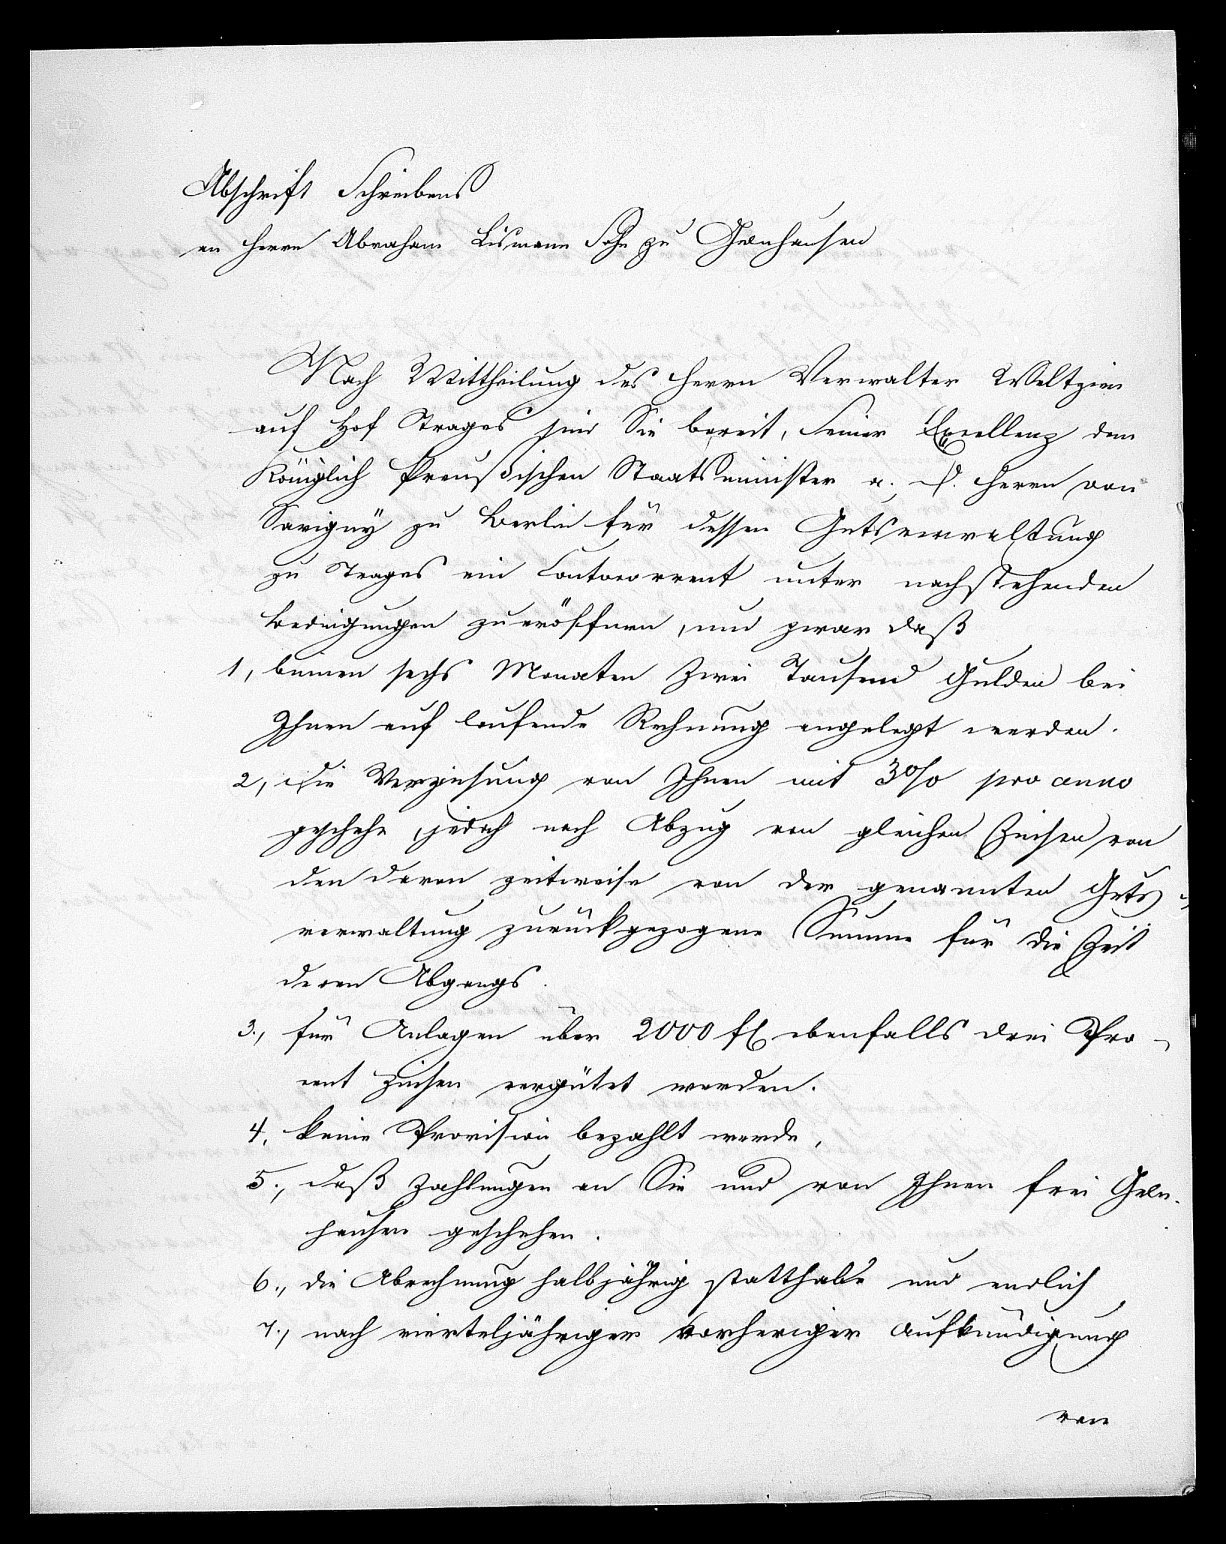 Abschrift Schreibens
an Herrn Abraham Lismann Sohn zu Gelnhausen
Nach Mittheilung des Herrn Verwalter Weltzien
auf Hof Trages sind Sie bereit, Seiner Excellenz dem
Königlich Preußischen Staatsminister a. D. Herrn von
Savigny zu Berlin für dessen Gutsverwaltung
zu Trages ein Contocorrent unter nachstehenden
Bedingungen zu eröffnen, und zwar daß
1, binnen sechs Monaten Zwei Tausend Gulden bei
Ihnen auf laufende Rechnung angelegt werden.
2, die Verzinsung von Ihnen mit 3% pro anno
geschehe, jedoch nach Abzug von gleichen Zinsen von
den davon zeitweise von der genannten Guts-
verwaltung zurückgezogene Summe für die Zeit
deren Abgangs.
3., für Anlagen über 2000 fl ebenfalls drei Pro-
cent Zinsen vergütet werden.
4, keine Provision bezahlt werde,
5., daß Zahlungen an Sie und von Ihnen frei Geln-
hausen geschehen.
6., die Abrechnung halbjährig statthabe und endlich
7., nach vierteljähriger vorheriger Aufkündigung
von